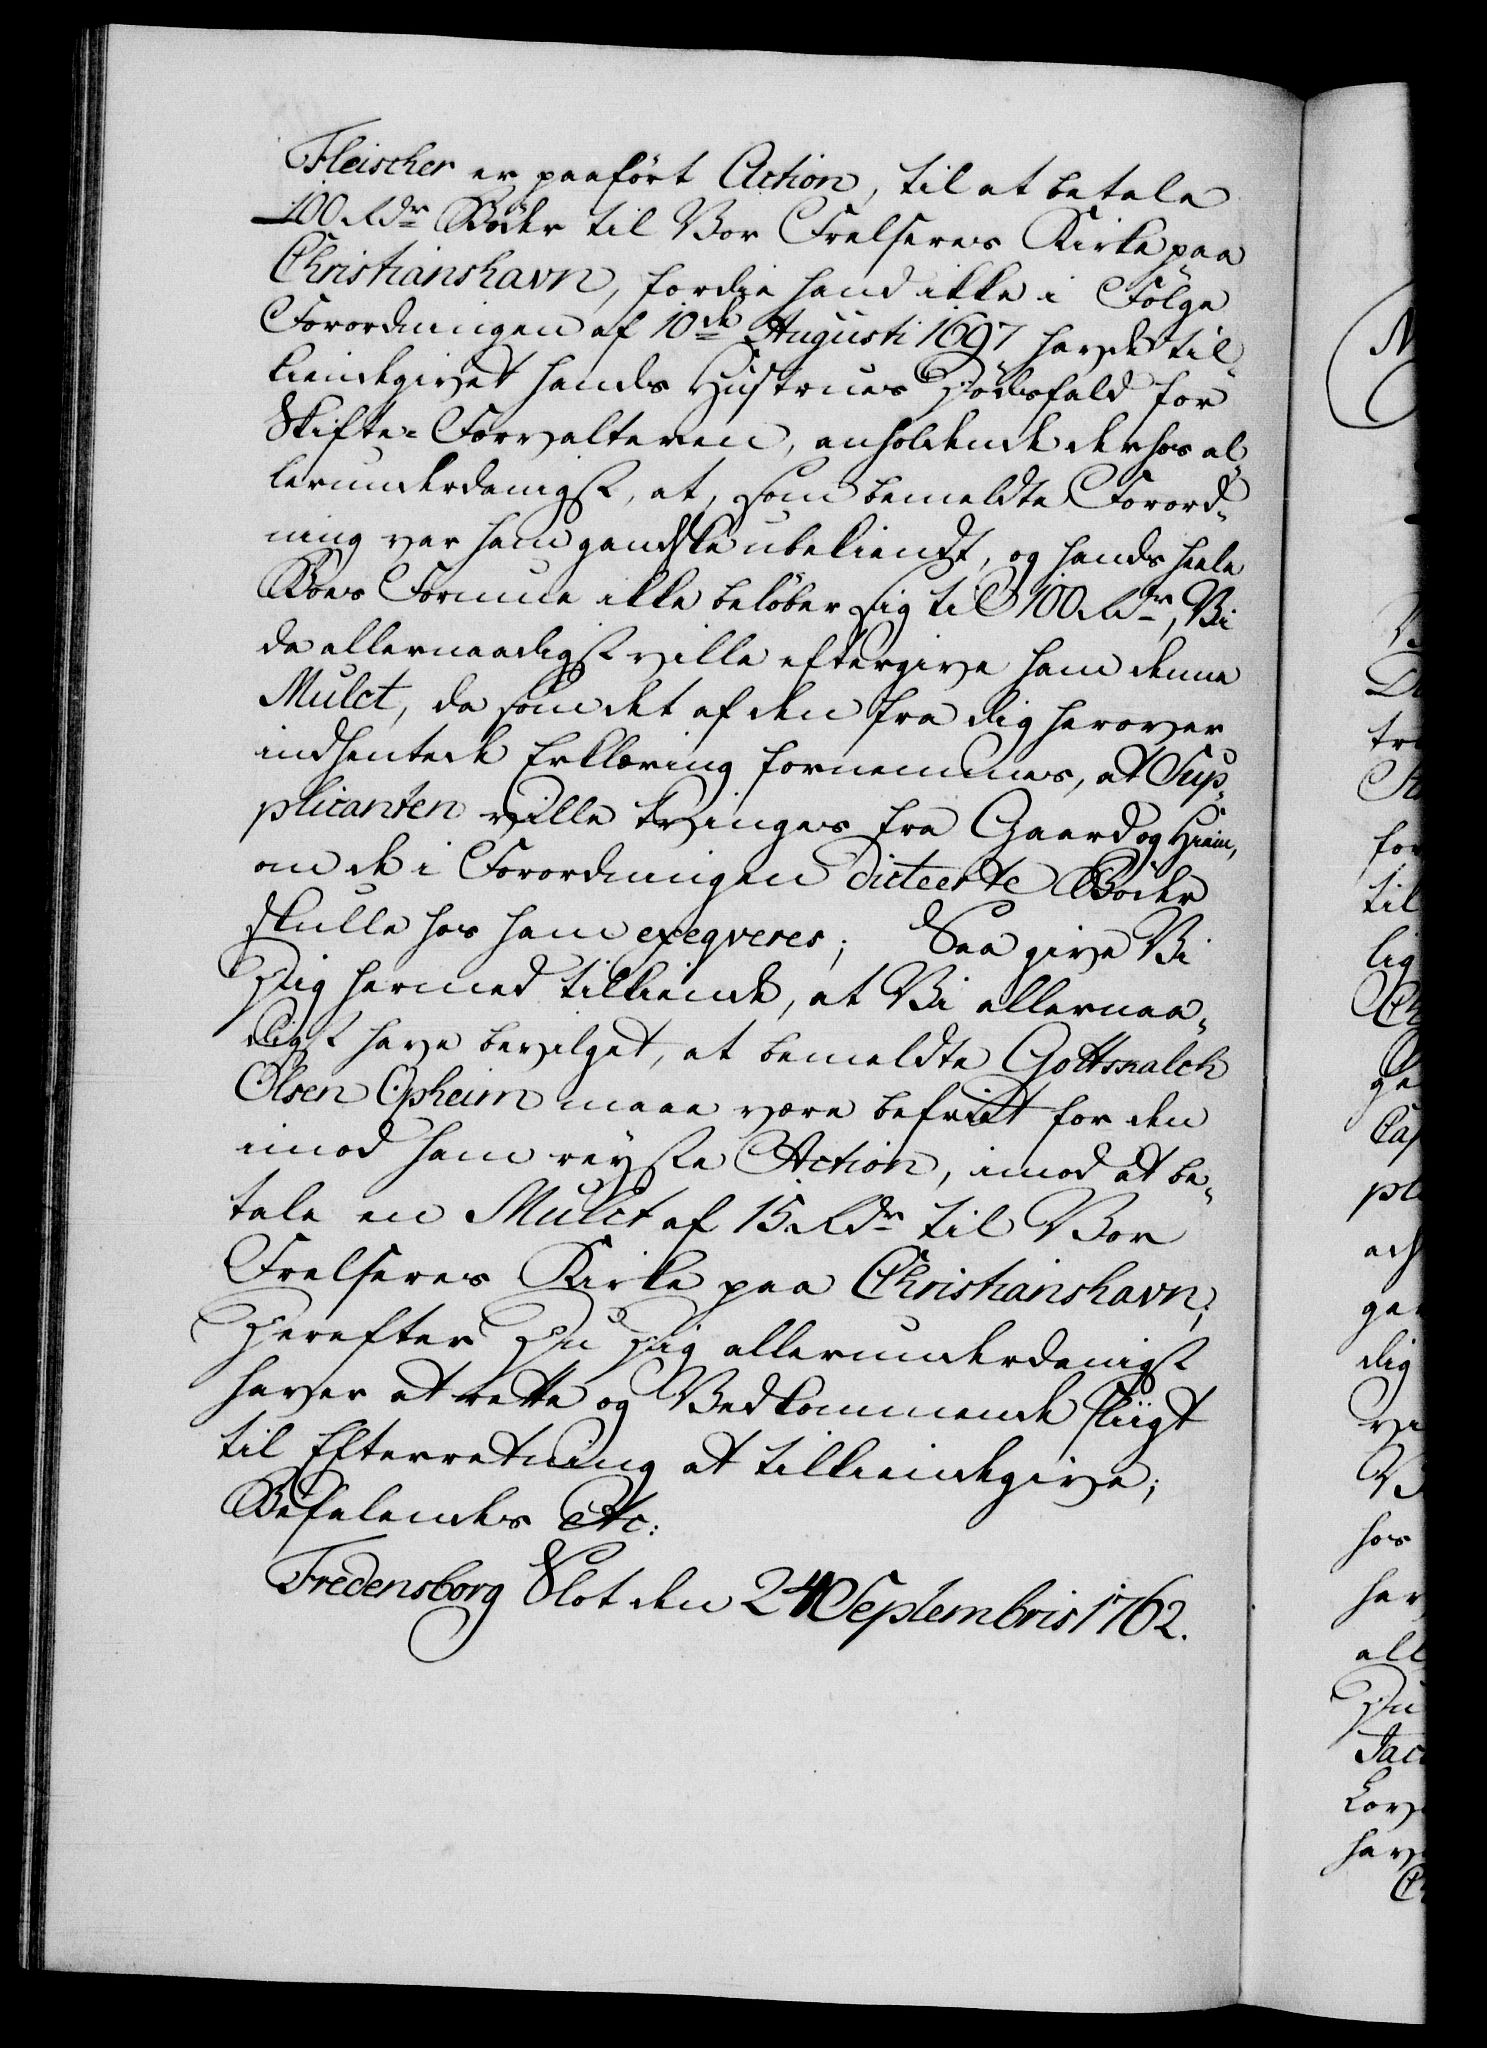 Fleischer er paaført Action, til at betale
100 Rdr Bøder til Vor Frelseres Kirke paa
Christianshavn, fordie hand ikke i Følge
Forordningen af 10de Augusti 1697 havde til-
kiendegivet hands Hustrues Dødsfald for
Skifte-Forvalteren, anholdende derhos al-
lerunderdanigst, at, som bemeldte Forord-
ning var ham gandske ubekiendt, og hands heele
Boes Formue ikke beløber sig til 100 Rdr, Vi
da allernaadigst ville eftergive ham denne
Mulct, da som det af den fra dig herover
indhentede Erklæring fornemmes, at Sup-
plicanten ville tvinges fra Gaard og Hiem,
om de i Forordningen dicteerte Bøder
skulle hos ham exeqveres; Saa give Vi
Dig hermed tilkiende, at Vi allernaa-
digst have bevilget, at bemeldte Gottskalck
Olsen Opheim maae være befriet for den
imod ham reyste Action, imod at be-
tale en Mulct af 15 Rdr til Vor
Frelseres Kirke paa Christianshavn;
Derefter Du Dig allerunderdanigst
haver at rette og Vedkommende sliigt
til Efterretning at tilkiendegive;
Befalendes etc:
Fredensborg Slot den 24 Septembris 1762.